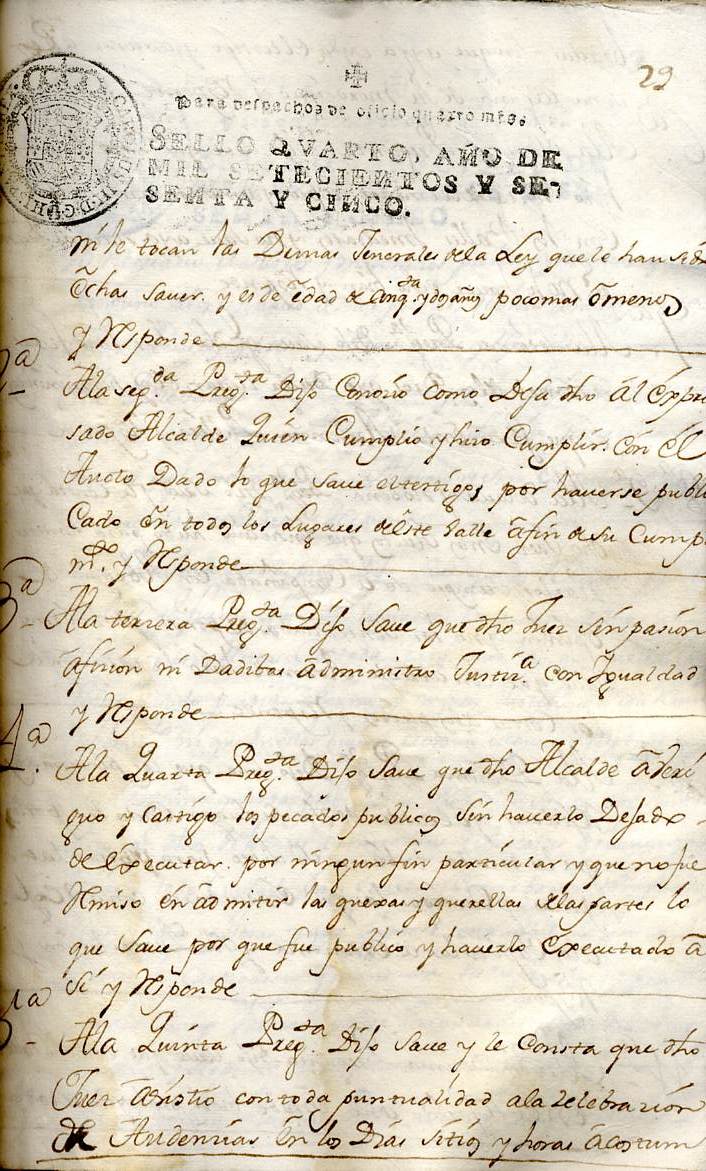 29
Para despachos de oficio quatro mrs.
SELLO QVARTO, AÑO DE
MIL SETECIENTOS Y SE-
SENTA Y CINCO.
ni le tocan las Demas Jenerales de la Ley que le han sido
echas saver. y es de edad de cinq.ta y dos años poco mas o menos
y Responde
2ª
Ala seg.da Preg.ta Dijo Conocio como Desa dho al Expre
sado Alcalde Quien Cumplio y hizo Cumplir. con el
Aucto Dado lo que save el testigo, por haverse publi
Cado en todos los Lugares deste Valle afin de su Cumpl
m.to y Responde
3ª
Ala terzera Preg.ta Dijo Save que dho Juez sin pasion
afizion ni Dadibas administro Justiz.a con Igualdad
y Responde
4ª
Ala Quarta Preg.ta Dijo Save que dho Alcalde averi
guo y castigo los pecados publicos sin haverlo Dejado
de Executar. por ningun fin particular y que no fue
Remiso en admitir las quexas y querellas de las partes lo
que Save por que fue publico y haverlo Executado a
si y Responde
5ª
Ala Quinta Preg.ta Dijo Save y le Consta que dho
Juez asistio con toda puntualidad ala zelebrazion
de Audenzias en los Dias sitios y horas acostum